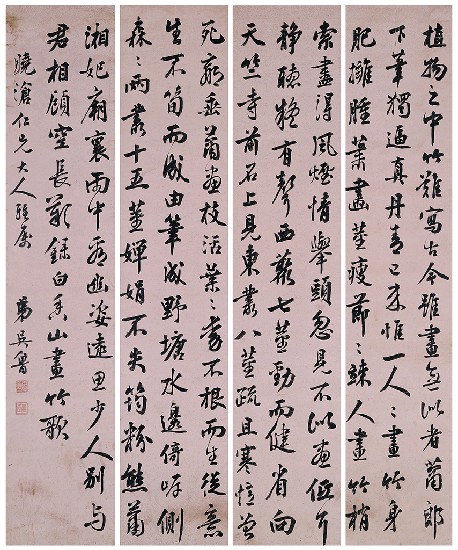 植物之中竹難寫古今雖畫無似者蕭郎
下筆獨逼真丹青已來惟一人々畫竹身
肥擁腫蕭畫莖瘦節々竦人畫竹梢
索盡得風煙情舉頭忽見不似畫低耳
靜聽疑有聲西叢七莖勁而健省向
天竺寺前石上見東叢八莖疏且寒憶曾
死羸垂蕭畫枝活葉々動不根而生從意
生不筍而成由筆成野塘水邊碕岸側
森々兩叢十五莖嬋娟不失筠粉態蕭
湘妃廟裏雨中看幽姿遠思少人別与
君相顧空長歎錄白香山畫竹歌
曉滄仁兄大人雅屬 弟吳魯